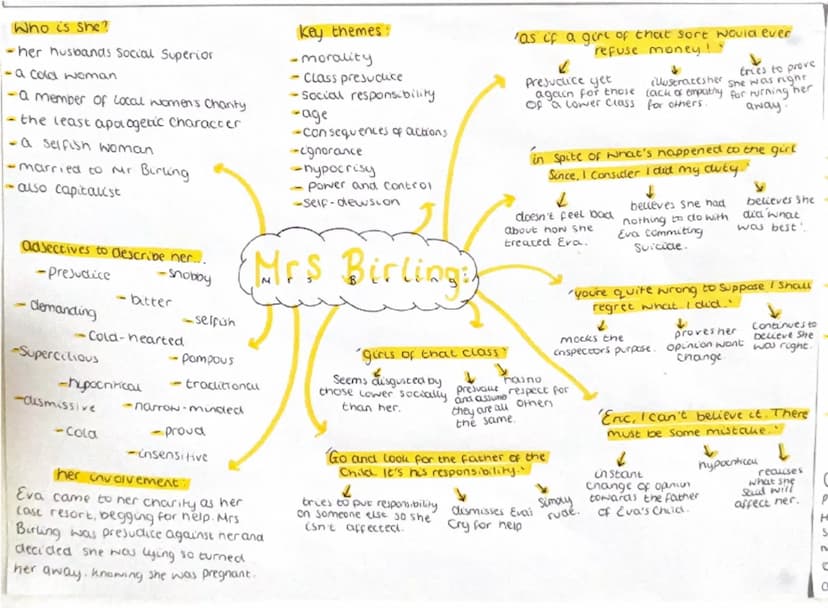 Who is she?
- her husbands Social Superior
- a cold woman
- a member of Local womens Charity
- the least apologetic character
- a selfish woman
- married to Mr Birling
- also capitalist
Key themes:
- morality
- Class prejudice
- Social responsibility
- age
- consequences of actions
- ignorance
- hypocrisy
- power and control
- self-delusion
"as if a girl of that sort would ever
refuse money!"
Prejudice yet
again for those
of a lower class
illustrates her
lack of empathy
for others.
tries to prove
she was right
for turning her
away.
'in spite of what's happened to the girl
since, I consider I did my duty.'
doesn't feel bad
about how she
treated Eva.
believes she had
nothing to do with
Eva commiting
Suicide.
believes she
did 'what
was best'.
'you're quite wrong to suppose I shall
regret what I did.'
mocks the
inspectors purpose.
proves her
opinion wont
change.
Continues to
believe she
was right.
Mrs Birling:
Mrs Birling
adjectives to describe her...
- prejudice
- snobby
- demanding
- bitter
- selfish
- Cold-hearted
- Supercilious
- pompous
- hypocritical
- traditional
- dismissive
- narrow-minded
- cold
- proud
- insensitive
'girls of that class'
Seems disgusted by
those lower socially
than her.
presume
and assume
they are all
the same.
has no
respect for
others
'Eric, I can't believe it. There
must be some mistake.'
instant
change of opinion
towards the father
of Eva's Child.
hypocritical
realises
what she
said will
affect her.
'Go and look for the father of the
Child. It's his responsibility.'
tries to put responsibility
on someone else so she
isn't affected.
dismisses Eva's
Cry for help
Simply
rude.
her involvement:
Eva came to her charity as her
last resort, begging for help. Mrs
Birling was prejudice against her and
decided she was lying so turned
her away, knowing she was pregnant.